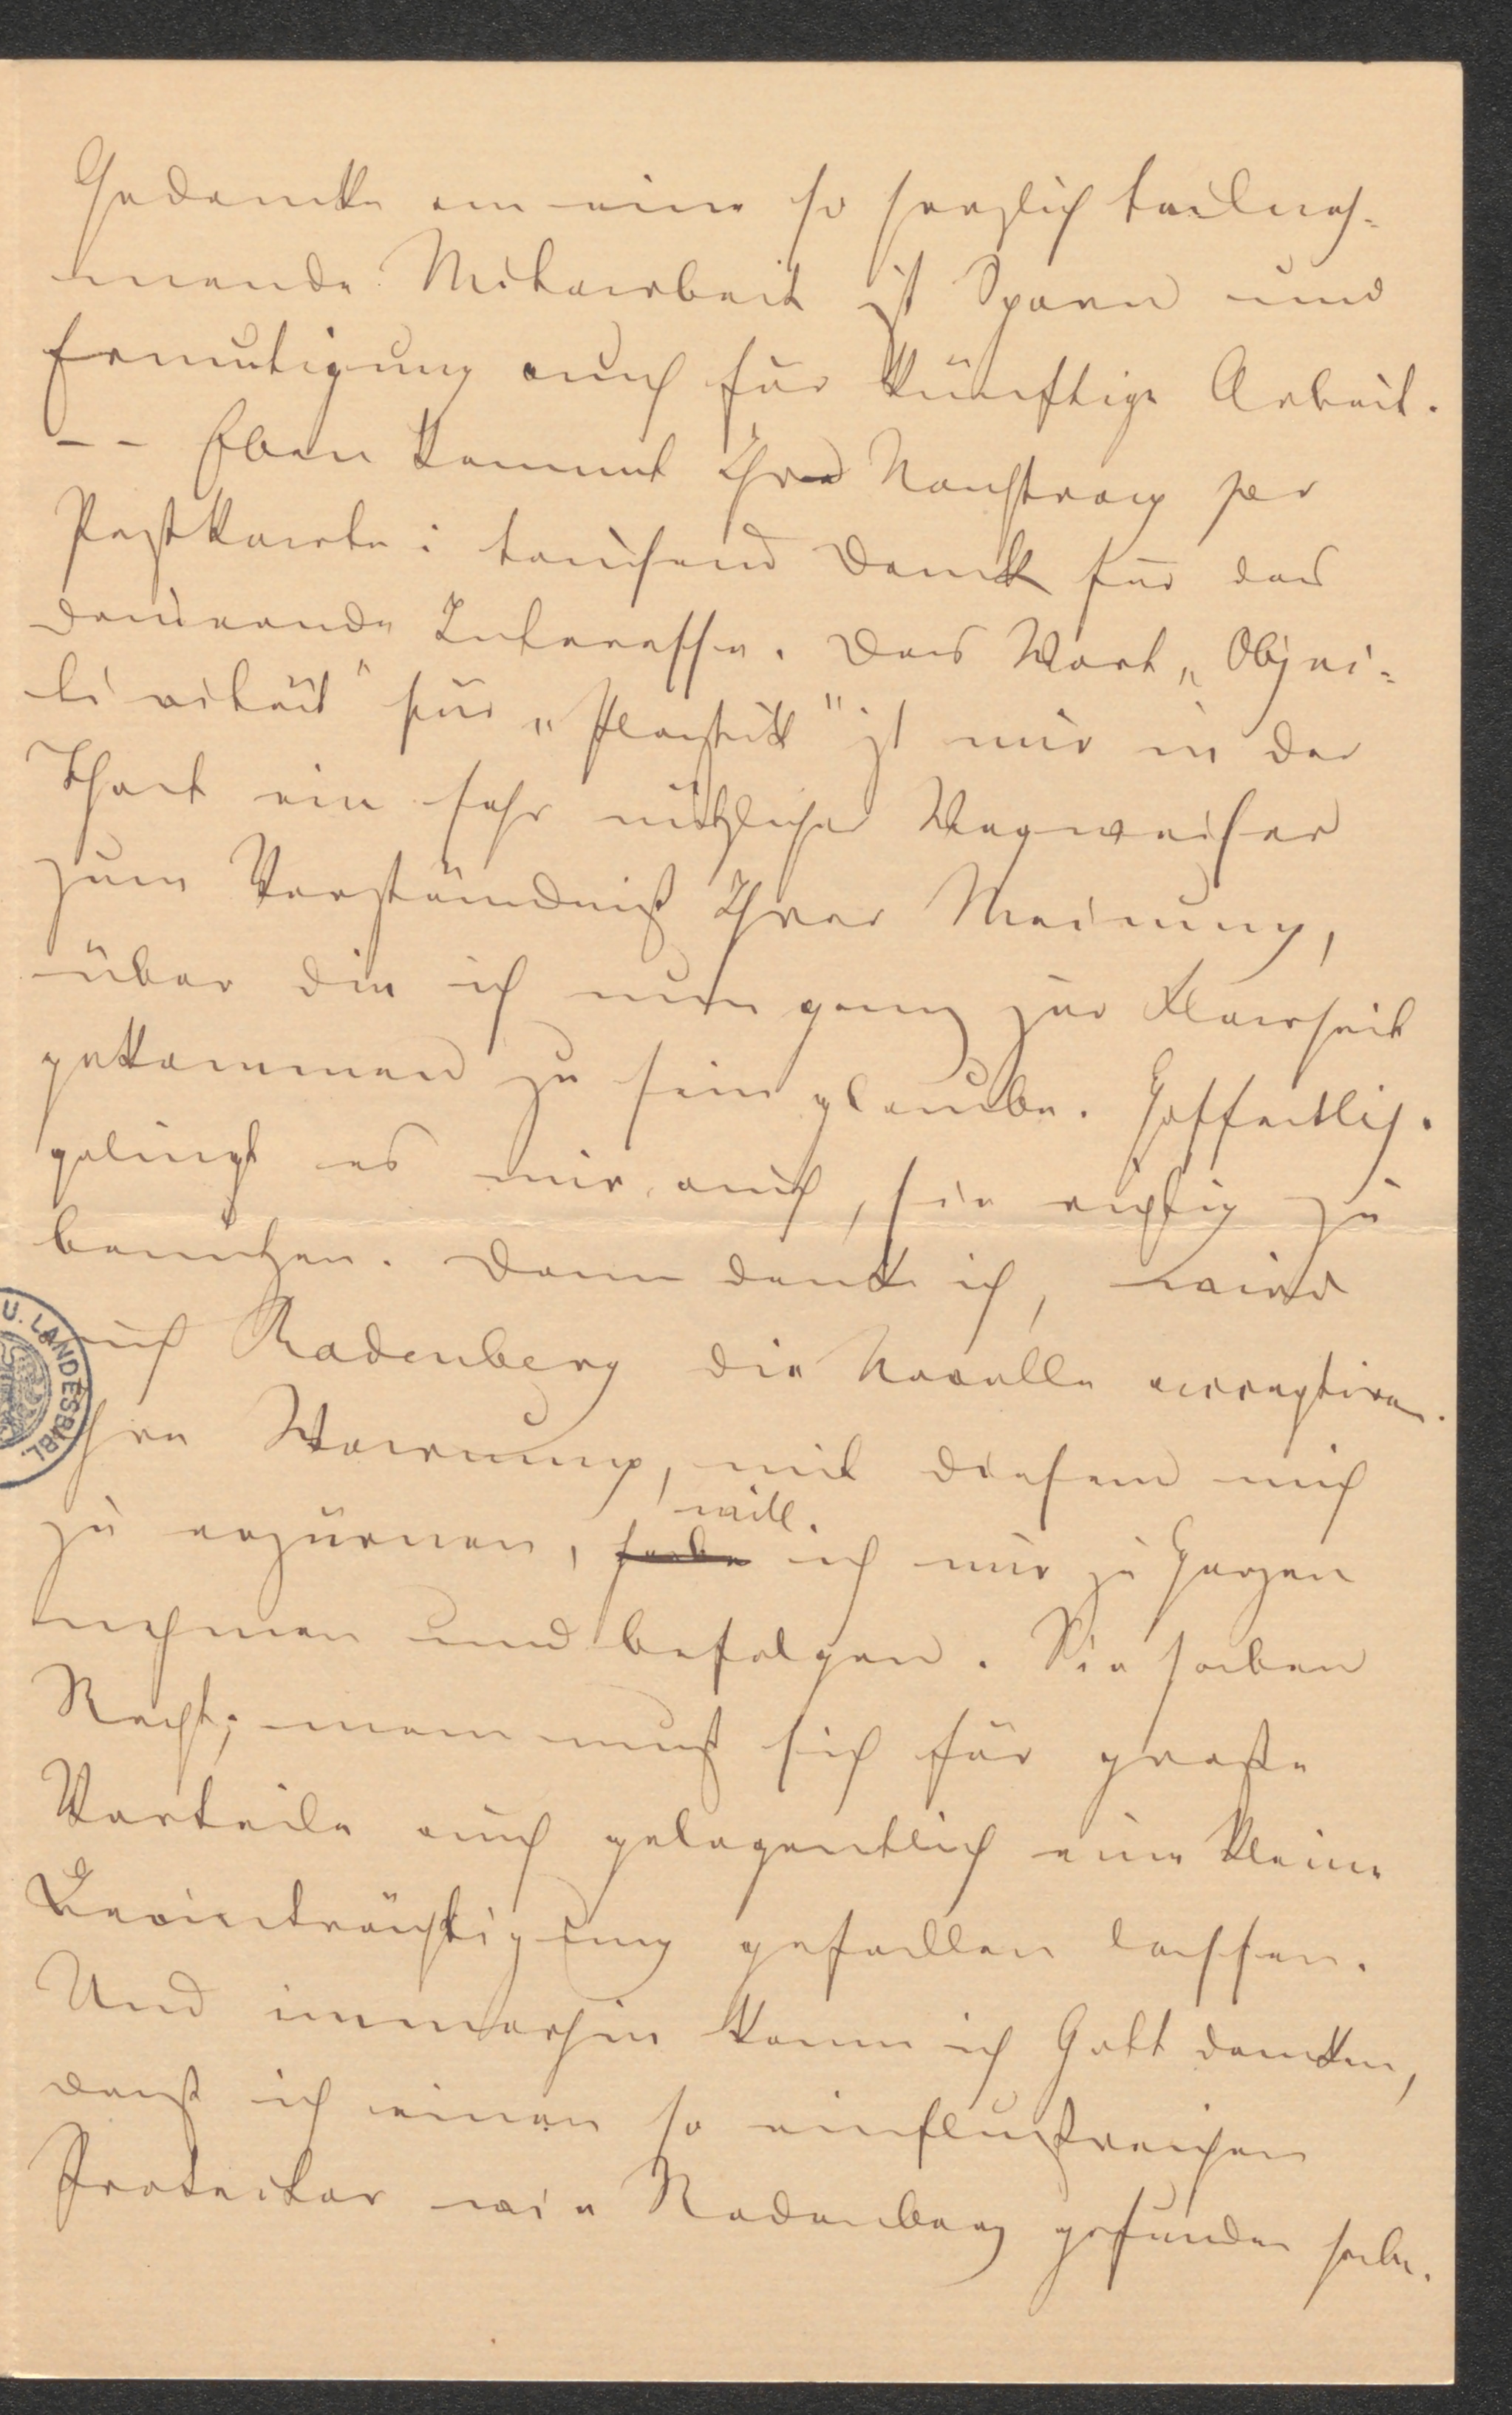 Gedanke an eine so herzlich teilneh-
mende Mitarbeit ist Sporn und
Ermutigung auch für künftige Arbeit.
-- Eben kommt Ihr Nachtrag per
Postkarte: tausend Dank für das
dauernde Interesse. Das Wort „Objec-
tivität" für „Plastik" ist mir in der
That ein sehr nützlicher Wegweiser
zum Verständniß Ihrer Meinung,
über die ich nun ganz zur Klarheit
gekommen zu sein glaube. Hoffentlich
gelingt es mir auch, sie richtig zu
benutzen. Dann denk ich, wird
auch Rodenberg die Novelle acceptiren.
Ihre Warnung, mit diesem mich
zu erzürnen, habe will ich mir zu Herzen
nehmen und befolgen. Sie haben
Recht; man muß sich für große
Vorteile auch gelegentlich eine kleine
Beeinträchtigung gefallen lassen.
Und immerhin kann ich Gott danken,
daß ich einen so einflußreichen
Protector wie Rodenberg gefunden habe.
U. LANDESBIBL.